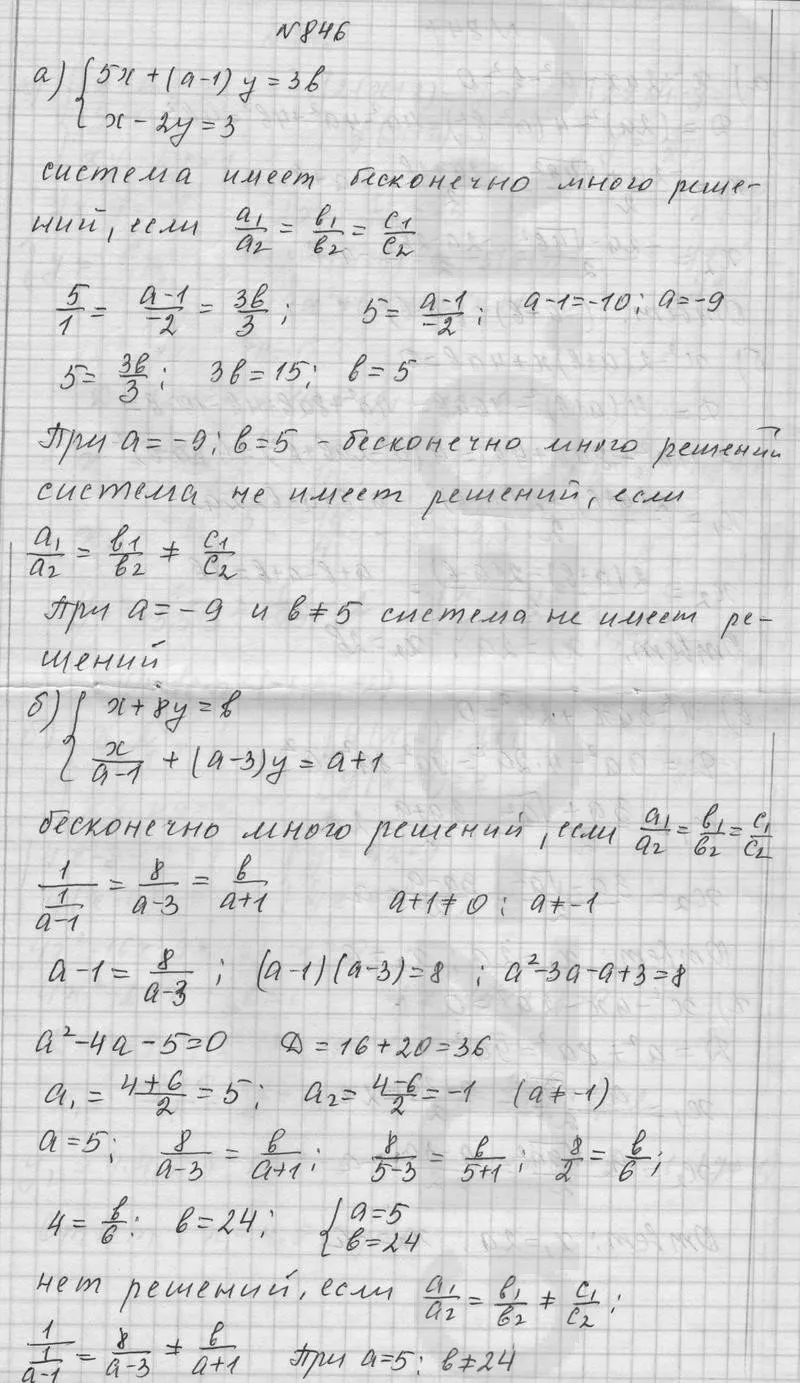 №846
а) { 5x + (a-1)y = 3в
x - 2y = 3
система имеет бесконечно много реше-
ний, если a₁/a₂ = в₁/в₂ = c₁/c₂
5/1 = (a-1)/-2 = 3в/3 ; 5 = (a-1)/-2 ; a-1=-10; a=-9
5 = 3в/3 ; 3в = 15; в = 5
При a = -9; в=5 - бесконечно много решений
система не имеет решений, если
a₁/a₂ = в₁/в₂ ≠ c₁/c₂
При a = -9 и в ≠ 5 система не имеет ре-
шений
б) { x + 8y = в
x/(a-1) + (a-3)y = a+1
бесконечно много решений, если a₁/a₂ = в₁/в₂ = c₁/c₂
1/(1/(a-1)) = 8/(a-3) = в/(a+1) a+1≠0; a≠-1
a-1 = 8/(a-3) ; (a-1)(a-3)=8 ; a²-3a-a+3=8
a²-4a-5=0 Д = 16+20=36
a₁ = (4+6)/2 = 5; a₂ = (4-6)/2 = -1 (a≠-1)
a=5; 8/(a-3) = в/(a+1) ; 8/(5-3) = в/(5+1) ; 8/2 = в/6 ;
4 = в/6 ; в=24; { a=5
в=24
нет решений, если a₁/a₂ = в₁/в₂ ≠ c₁/c₂ ;
1/(1/(a-1)) = 8/(a-3) ≠ в/(a+1) При a=5; в≠24